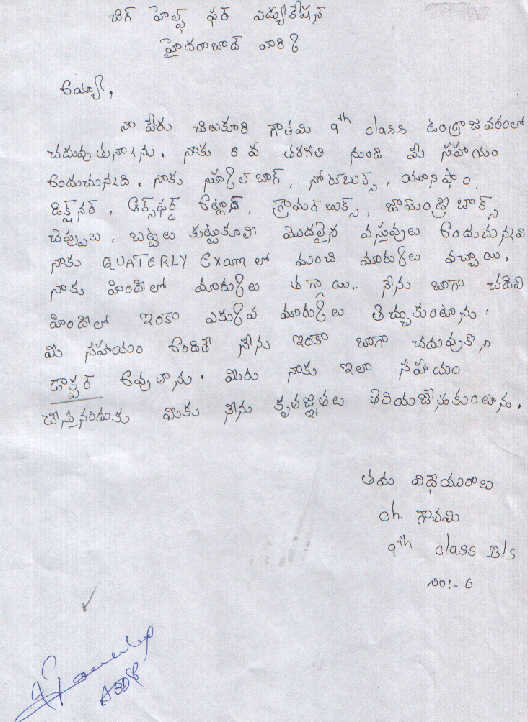 బిగ్ హెల్ప్ ఫర్ ఎడ్యుకేషన్
హైదరాబాద్ వారికి
అయ్యా,
నా పేరు చిలుకూరి గౌతమి 9th class ఉండ్రాజవరంలో
చదువుతున్నాను. నాకు 8 వ తరగతి నుండి మీ సహాయం
అందుచున్నది. నాకు స్కూల్ బ్యాగ్, నోట్ బుక్స్, యూనిఫాం
డిక్ష్నరి, ఆక్స్ ఫర్డ్ అట్లాస్, గ్రామర్ బుక్స్, జామెంట్రీ బాక్స్
చెప్పులు, బట్టలు కుట్టుకూలి మొదలైన వస్తువులు అందుచున్నవి
నాకు QUATERLY Exam లో మంచి మార్కులు వచ్చాయి.
నాకు హిందీలో మార్కులు తగ్గాయి.. నేను బాగా చదివి
హిందీలో ఇంకా ఎక్కువ మార్కులు తెచ్చుకుంటాను.
మీ సహాయం ఉంటే నేను ఇంకా బాగా చదువుకొని
డాక్టర్ అవుతాను. మీరు నాకు ఇలా సహాయం
చేస్తున్నందుకు మీకు నేను కృతజ్ఞతలు తెలియజేసుకుంటాను.
తమ విధేయురాలు
ch గౌతమి
9th class B/s
no:- 6